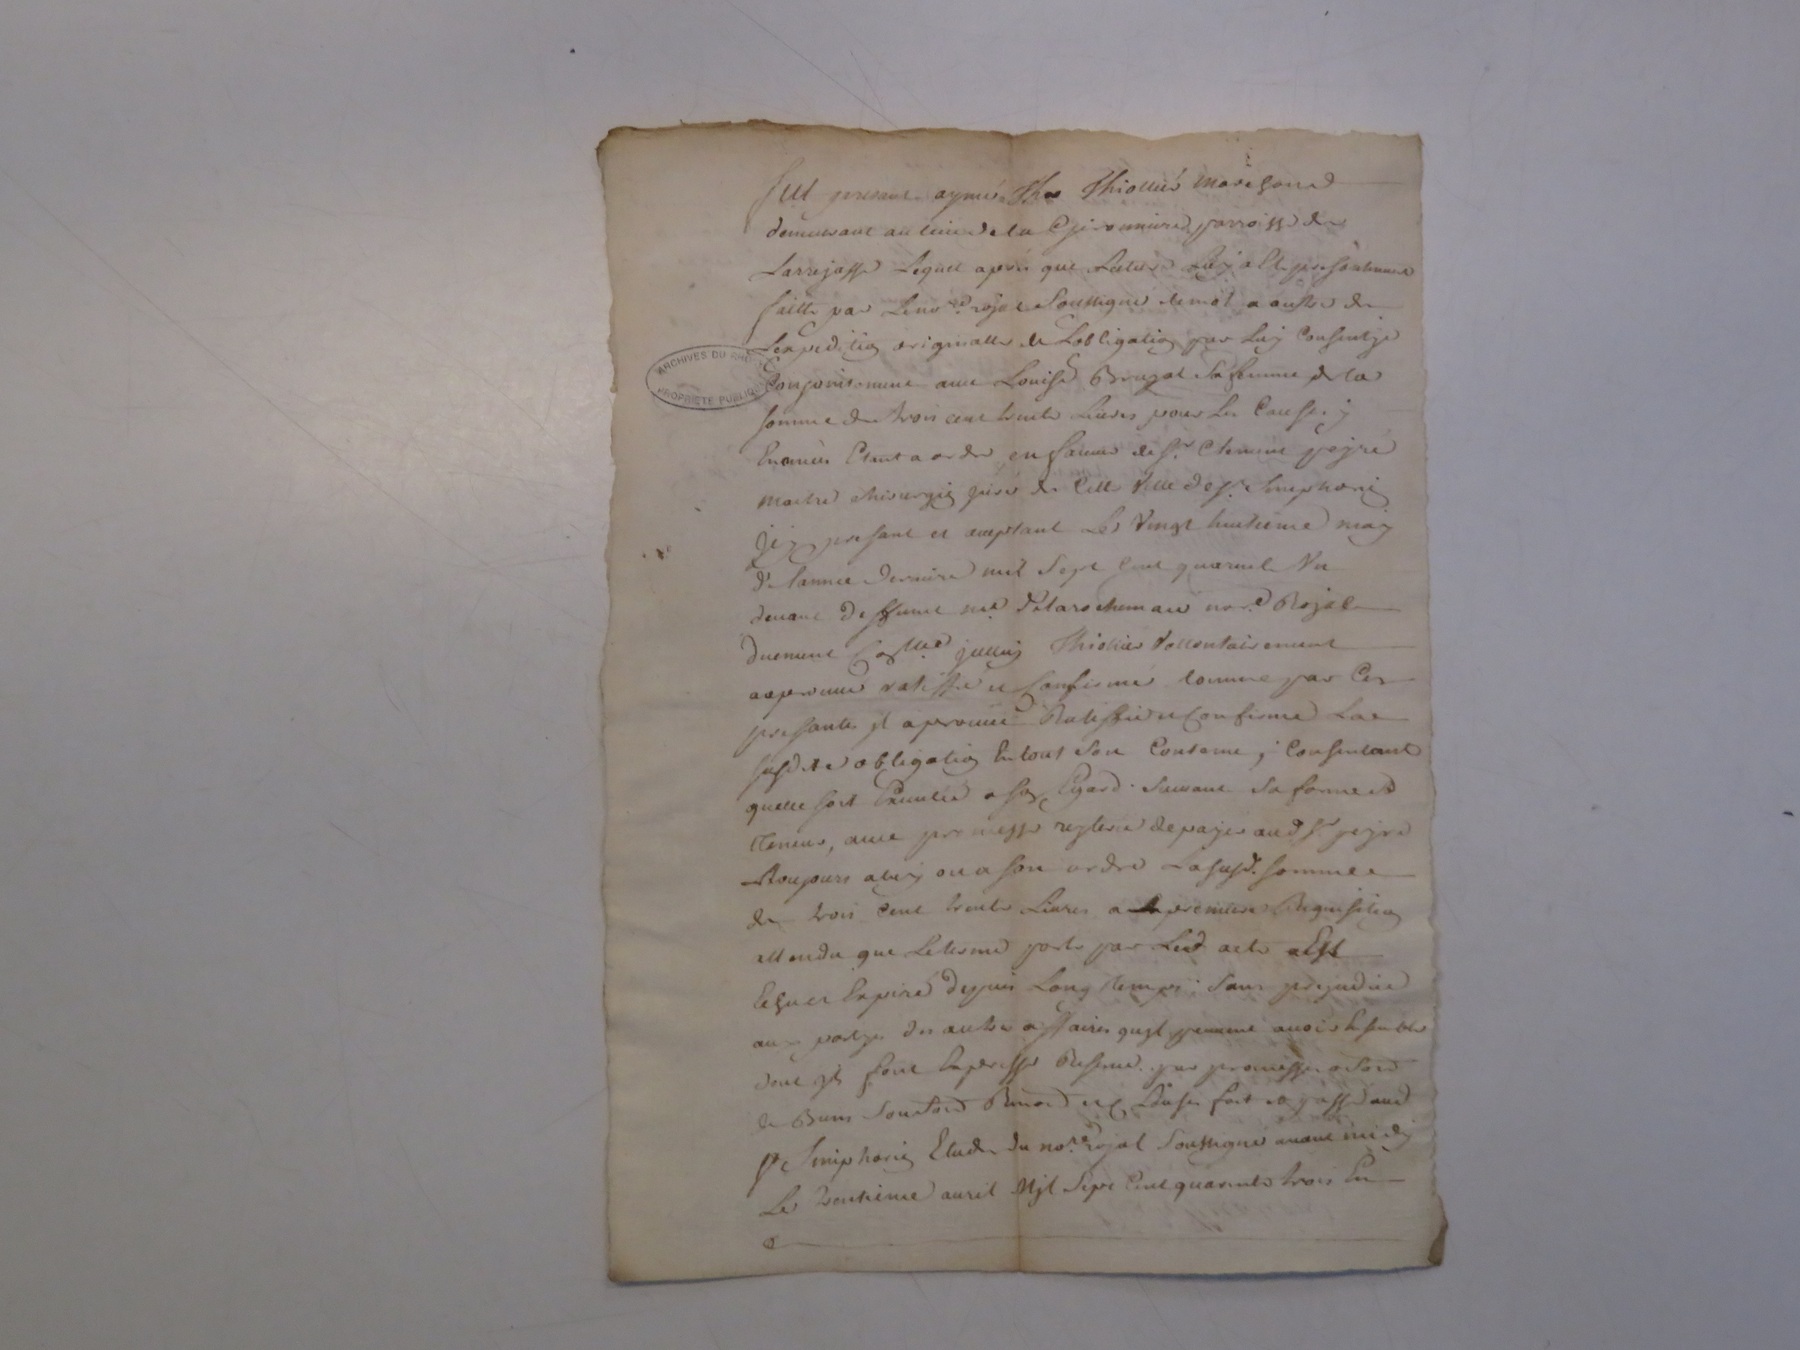 fut present aymé Thiollier marchand
demeurant au lieu de la parroisse de
Larrajasse Lequel après que Lecture Luy a Eté presentement
faitte par Le no.re royal Soussigné de mot a autre de
Lexpedition originalle de Lobligation par Luy Consentye
Conjointement avec Louise Bruyat Sa femme de la
somme de trois cent trente Livres pour Les Causes y
Enoncées Et a ordre en faveur de Sr. Clement peyre
maitre chirurgien juré de Cette Ville de St. Simphorien
jcy present et acceptant Le Vingt huitieme may
de Lannée derniere mil Sept Cent quarente
devant deffunt me. no.re Royal
duement Thiollier Vollontairement
approuvé ratiffié et Confirmé comme par Ces
presantes jl aprouve Ratiffie et Confirme La
susd.te obligation En tout Son Contenu, Consentant
quelle soit Executée a Son Egard Suivant Sa forme et
Teneur, avec promesse de payer aud. Sr. peyre
Toujours a luy ou a Son ordre La susd. Somme
de trois Cent trente Livres a La premiere Requisition
attendu que Le terme porté par Led. acte Est
Echu et Expiré depuis Long temps; Sans prejudice
aux partyes des autres affaires quil peuvent avoir Ensemble
dont jls font Expresse Reserve. par promesses
de Biens et Clauses fait et passé aud.
St. Simphorien Etude du no.re royal Soussigné avant midy
Le trentieme avril Mjl Sept Cent quarente trois En
ARCHIVES DU RHONE
PROPRIETE PUBLIQUE